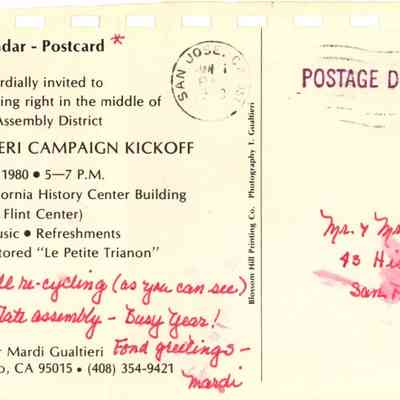 ndar - Postcard *
rdially invited to
ing right in the middle of
Assembly District
ERI CAMPAIGN KICKOFF
1980 • 5—7 P.M.
fornia History Center Building
Flint Center)
usic • Refreshments
tored "Le Petite Trianon"
re-cycling (as you can see)
assembly - Busy Year!
r Mardi Gualtieri Fond greetings -
o, CA 95015 • (408) 354-9421
Mardi
Blossom Hill Printing Co. Photography T. Gualtieri
SAN JOSE, CA
POSTAGE D
Mr. & M
43 His
San